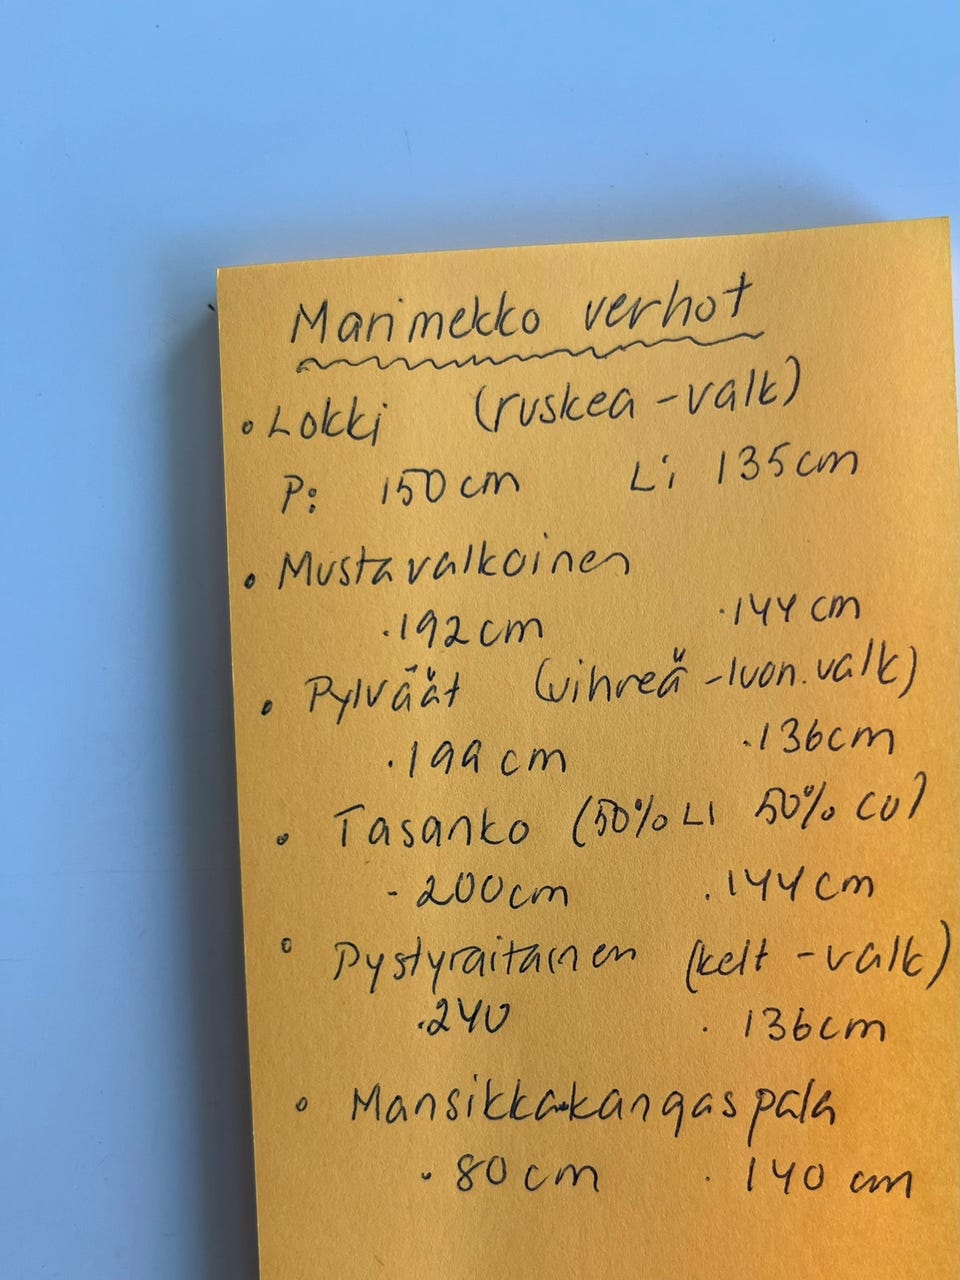 Marimekko verhot
• Lokki (ruskea - valk)
P: 150 cm Li 135cm
• Mustavalkoinen
.192 cm .144 cm
• Pylväät (vihreä - luon.valk)
.199 cm .136cm
• Tasanko (50% LI 50% CO)
- 200cm .144cm
• Pystyraitainen (kelt - valk)
.240 . 136cm
• Mansikkakangaspala
. 80 cm . 140 cm